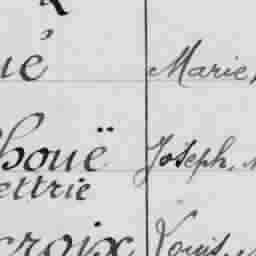 ué Marie,
houë Joseph,
ettrie
croix Louis,